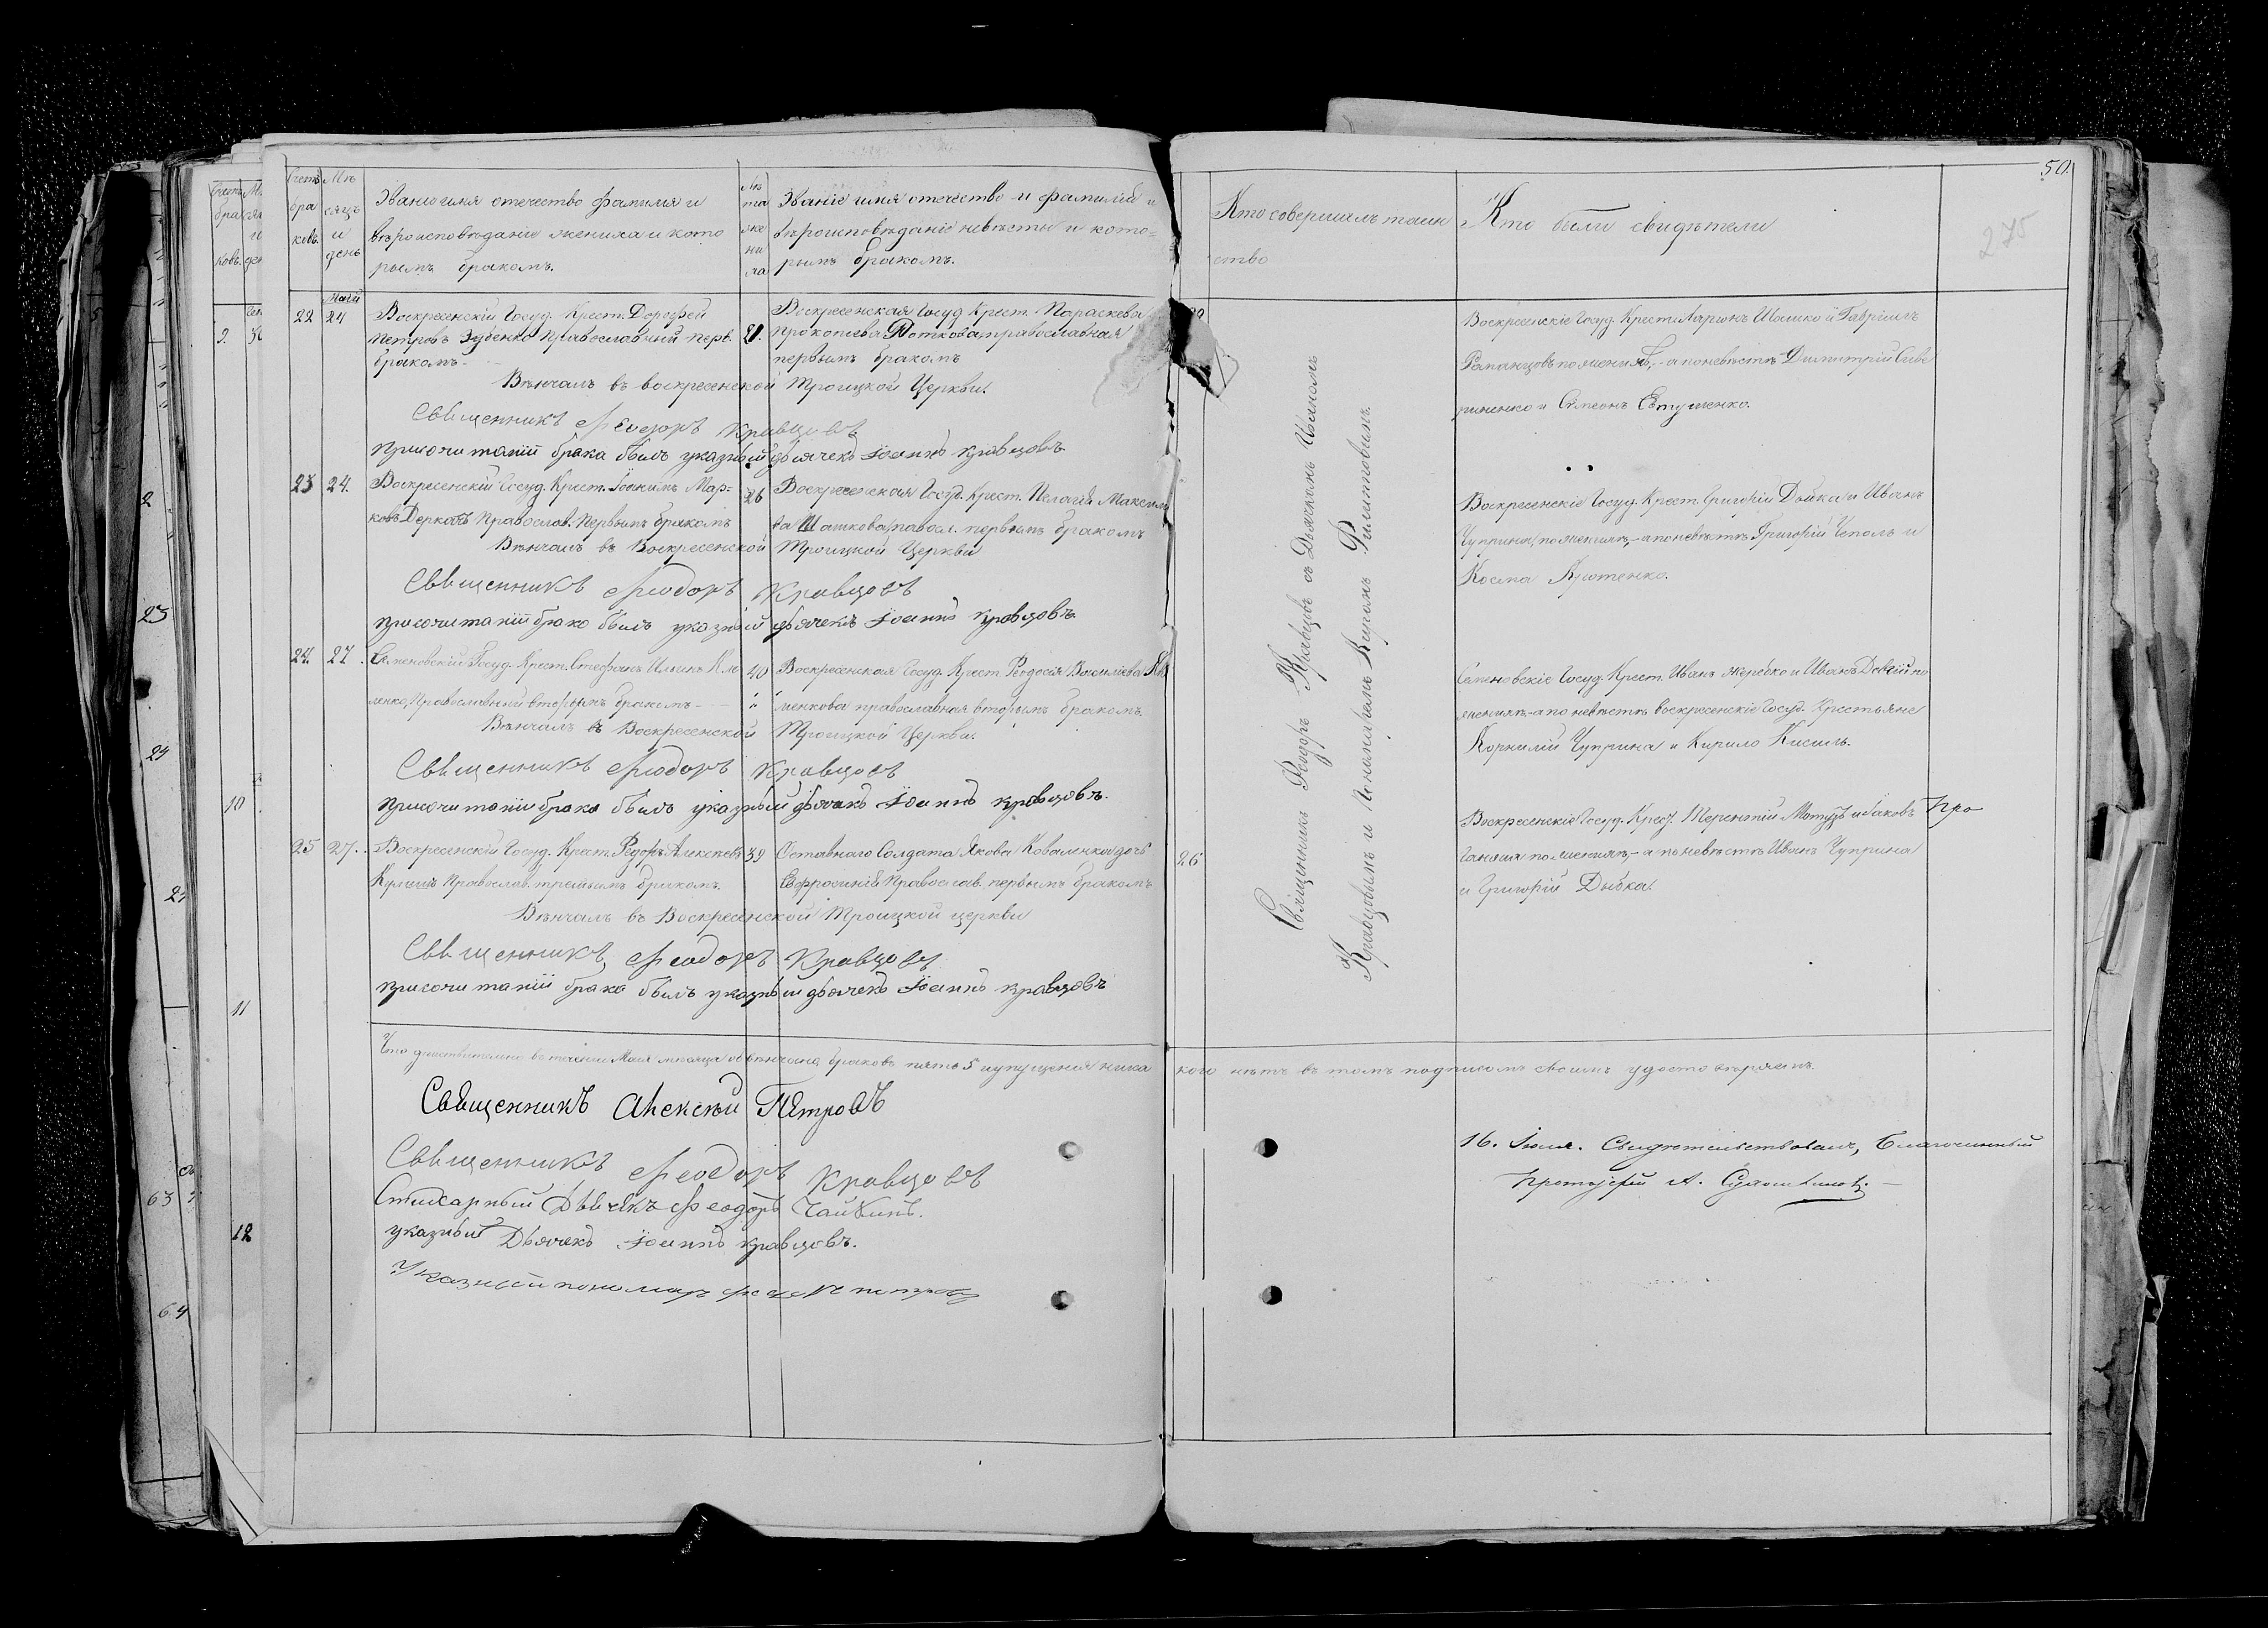 Счетъ бра ковъ.
Мѣ сяцъ и день
Званіе имя отечество фамилія и
вѣроисповѣданіе жениха и кото
рымъ бракомъ.
Лѣ та же ни ха
Званіе имя отечество и фамилія и
вѣроисповѣданіе невѣсты и кото=
рымъ бракомъ.
Маія
22 24
Воскресенскій Госуд. Крест. Дорофей
Петровъ Зубенко Православный перв.
бракомъ.
21.
Воскресенская Госуд. Крест. Параскева
Прокопіева православная
первымъ бракомъ
Вѣнчалъ въ воскресенской Троицкой Церкви.
Священникъ Феодоръ Кравцовъ
При сочитаніи брака былъ указный дьячекъ Іоаннъ Кравцовъ
23 24.
Воскресенскій Госуд. Крест. Іоакимъ Мар=
ковъ Деркачъ Православ. первымъ бракомъ
26
Воскресенская Госуд. Крест. Пелагія Максимо
ва Шашкова правосл. первымъ бракомъ
Вѣнчалъ въ Воскресенской Троицкой Церкви
Священникъ Феодоръ Кравцовъ
При сочитаніи брака былъ указный дьячекъ Іоаннъ Кравцовъ
24. 27.
Семеновскій Госуд. Крест. Стефанъ Ильинъ Кли
менко, Православный вторымъ бракомъ
40
Воскресенская Госуд. Крест. Феодосія Васильева Кли
менкова православная вторымъ бракомъ.
Вѣнчалъ въ Воскресенской Троицкой Церкви.
Священникъ Феодоръ Кравцовъ
При сочитаніи брака былъ указный дьячекъ Іоаннъ Кравцовъ.
25 27.
Воскресенскій Госуд. Крест. Федоръ Алексѣевъ
Кулишъ Православ. третьимъ бракомъ.
39
Отставнаго Солдата Якова Коваленка дочь
Евфросинія Православ. первымъ бракомъ
Вѣнчалъ въ Воскресенской Троицкой церкви
Священникъ, Феодоръ Кравцовъ
При сочитаніи брака былъ указный дьячекъ Іоаннъ Кравцовъ
Что дѣйствительно въ теченіи Маія мѣсяца обвѣнчано браковъ пять 5 и упущенія ника
Священникъ Алексѣй Петровъ
Священникъ Феодоръ Кравцовъ
Стихарный Дьячекъ Феодоръ Чайкинъ.
указный Дьячекъ Іоаннъ Кравцовъ.
Указный пономарь Петровъ
50.
275
Кто совершалъ таин
ство
Кто были свидѣтели
Священникъ Феодоръ Кравцовъ съ Дьячкомъ Іоанномъ
Кравцовымъ и Пономаремъ Филипповымъ.
Воскресенскіе Госуд. Крест. Ларіонъ Ивашко и Гавріилъ
Рапанцовъ по женихѣ, а по невѣстѣ Димитрій Сиве
риненко и Симеонъ Евтушенко.
Воскресенскіе Госуд. Крест. Григорій Дыбка и Иванъ
Чуприна по женихѣ, а по невѣстѣ Григорій и
Косма
Семеновскіе Госуд. Крест. Иванъ Жеребко и Иванъ по
женихѣ, а по невѣстѣ воскресенскіе Госуд. Крестьяне
Корнилій Чуприна и Кирило Кисиль.
26
Воскресенскіе Госуд. Крест. Терентій Мотузъ и Іаковъ
по женихѣ, а по невѣстѣ Иванъ Чуприна
и Григорій Дыбка.
Про
кого нѣтъ въ томъ подписомъ своимъ удостовѣряемъ.
16. Іюля. Свидѣтельствовалъ, Благочинный
Протоіерей А.